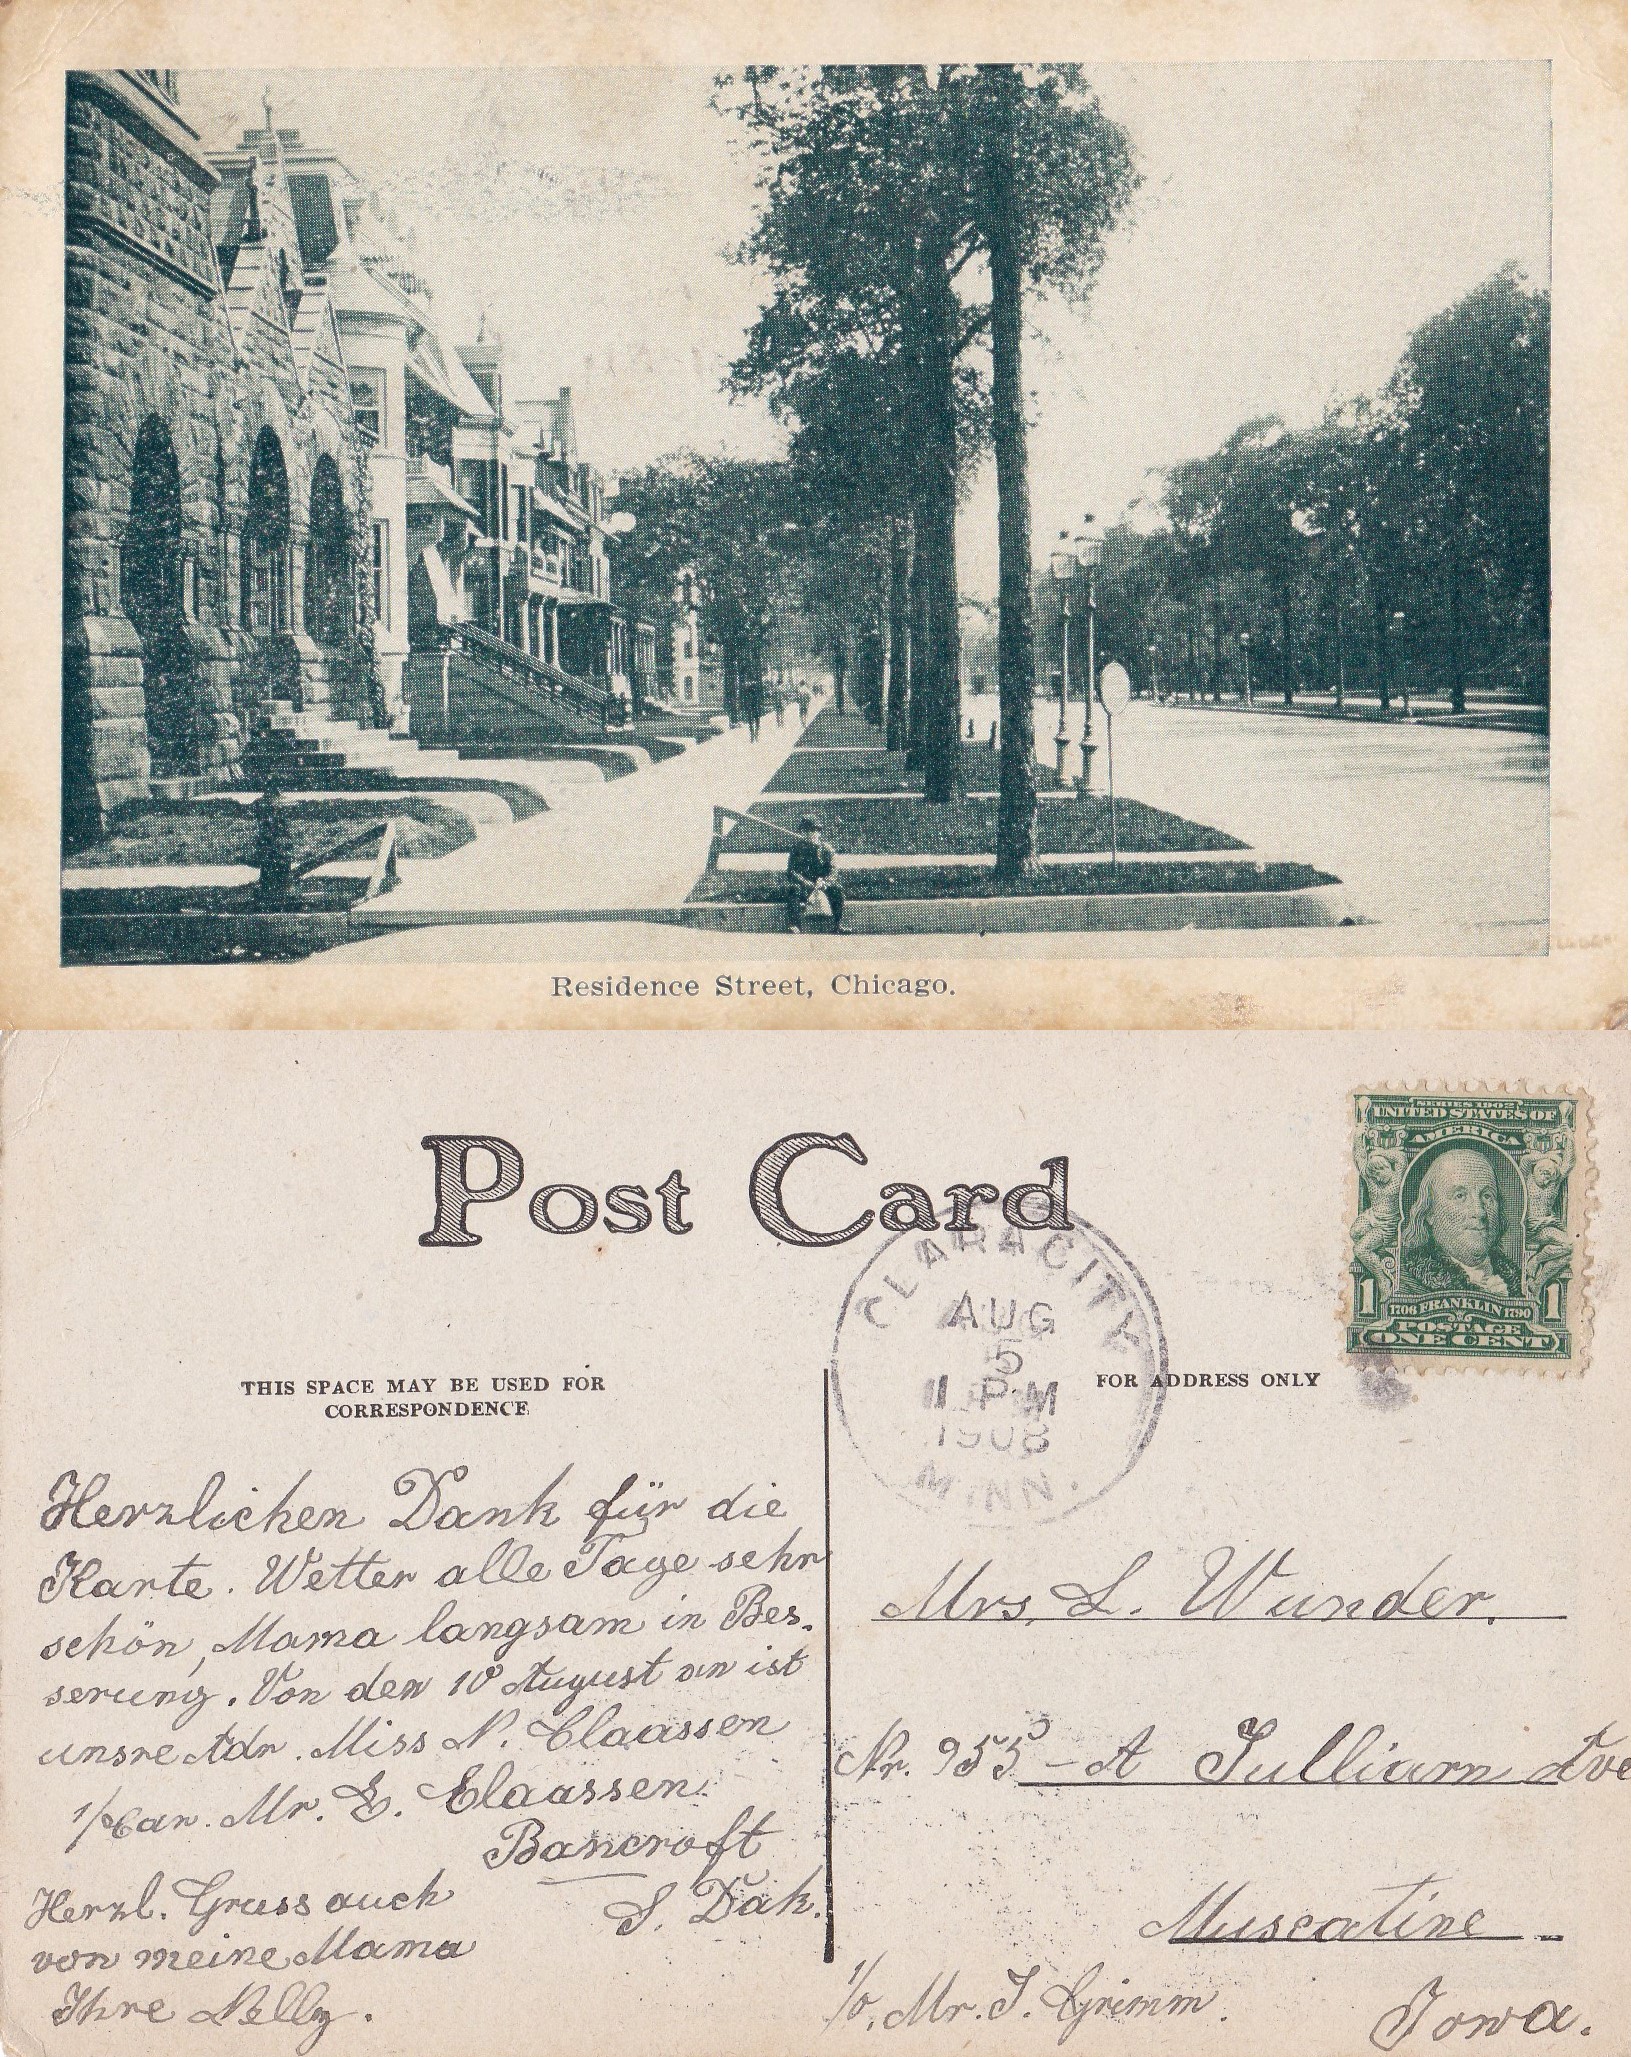 Residence Street, Chicago.
Post Card
SERIES 1902
UNITED STATES OF
AMERICA
1 1706 FRANKLIN 1790 1
POSTAGE
ONE CENT
CLARA CITY
AUG
5
1 PM
1908
MINN.
THIS SPACE MAY BE USED FOR
CORRESPONDENCE
FOR ADDRESS ONLY
Herzlichen Dank für die
Karte. Wetter alle Tage sehr
schön, Mama langsam in Bes-
serung. Von den 10 August an ist
unsre Adr. Miss N. Claassen
Mr. E. Claassen
Bancroft
S. Dak.
Herzl. Gruss auch
von meine Mama
Ihre Nelly.
Mrs. L. Wunder.
Nr. 955-A Sullivan Ave
Muscatine
Iowa.
c/o. Mr. J. Grimm.